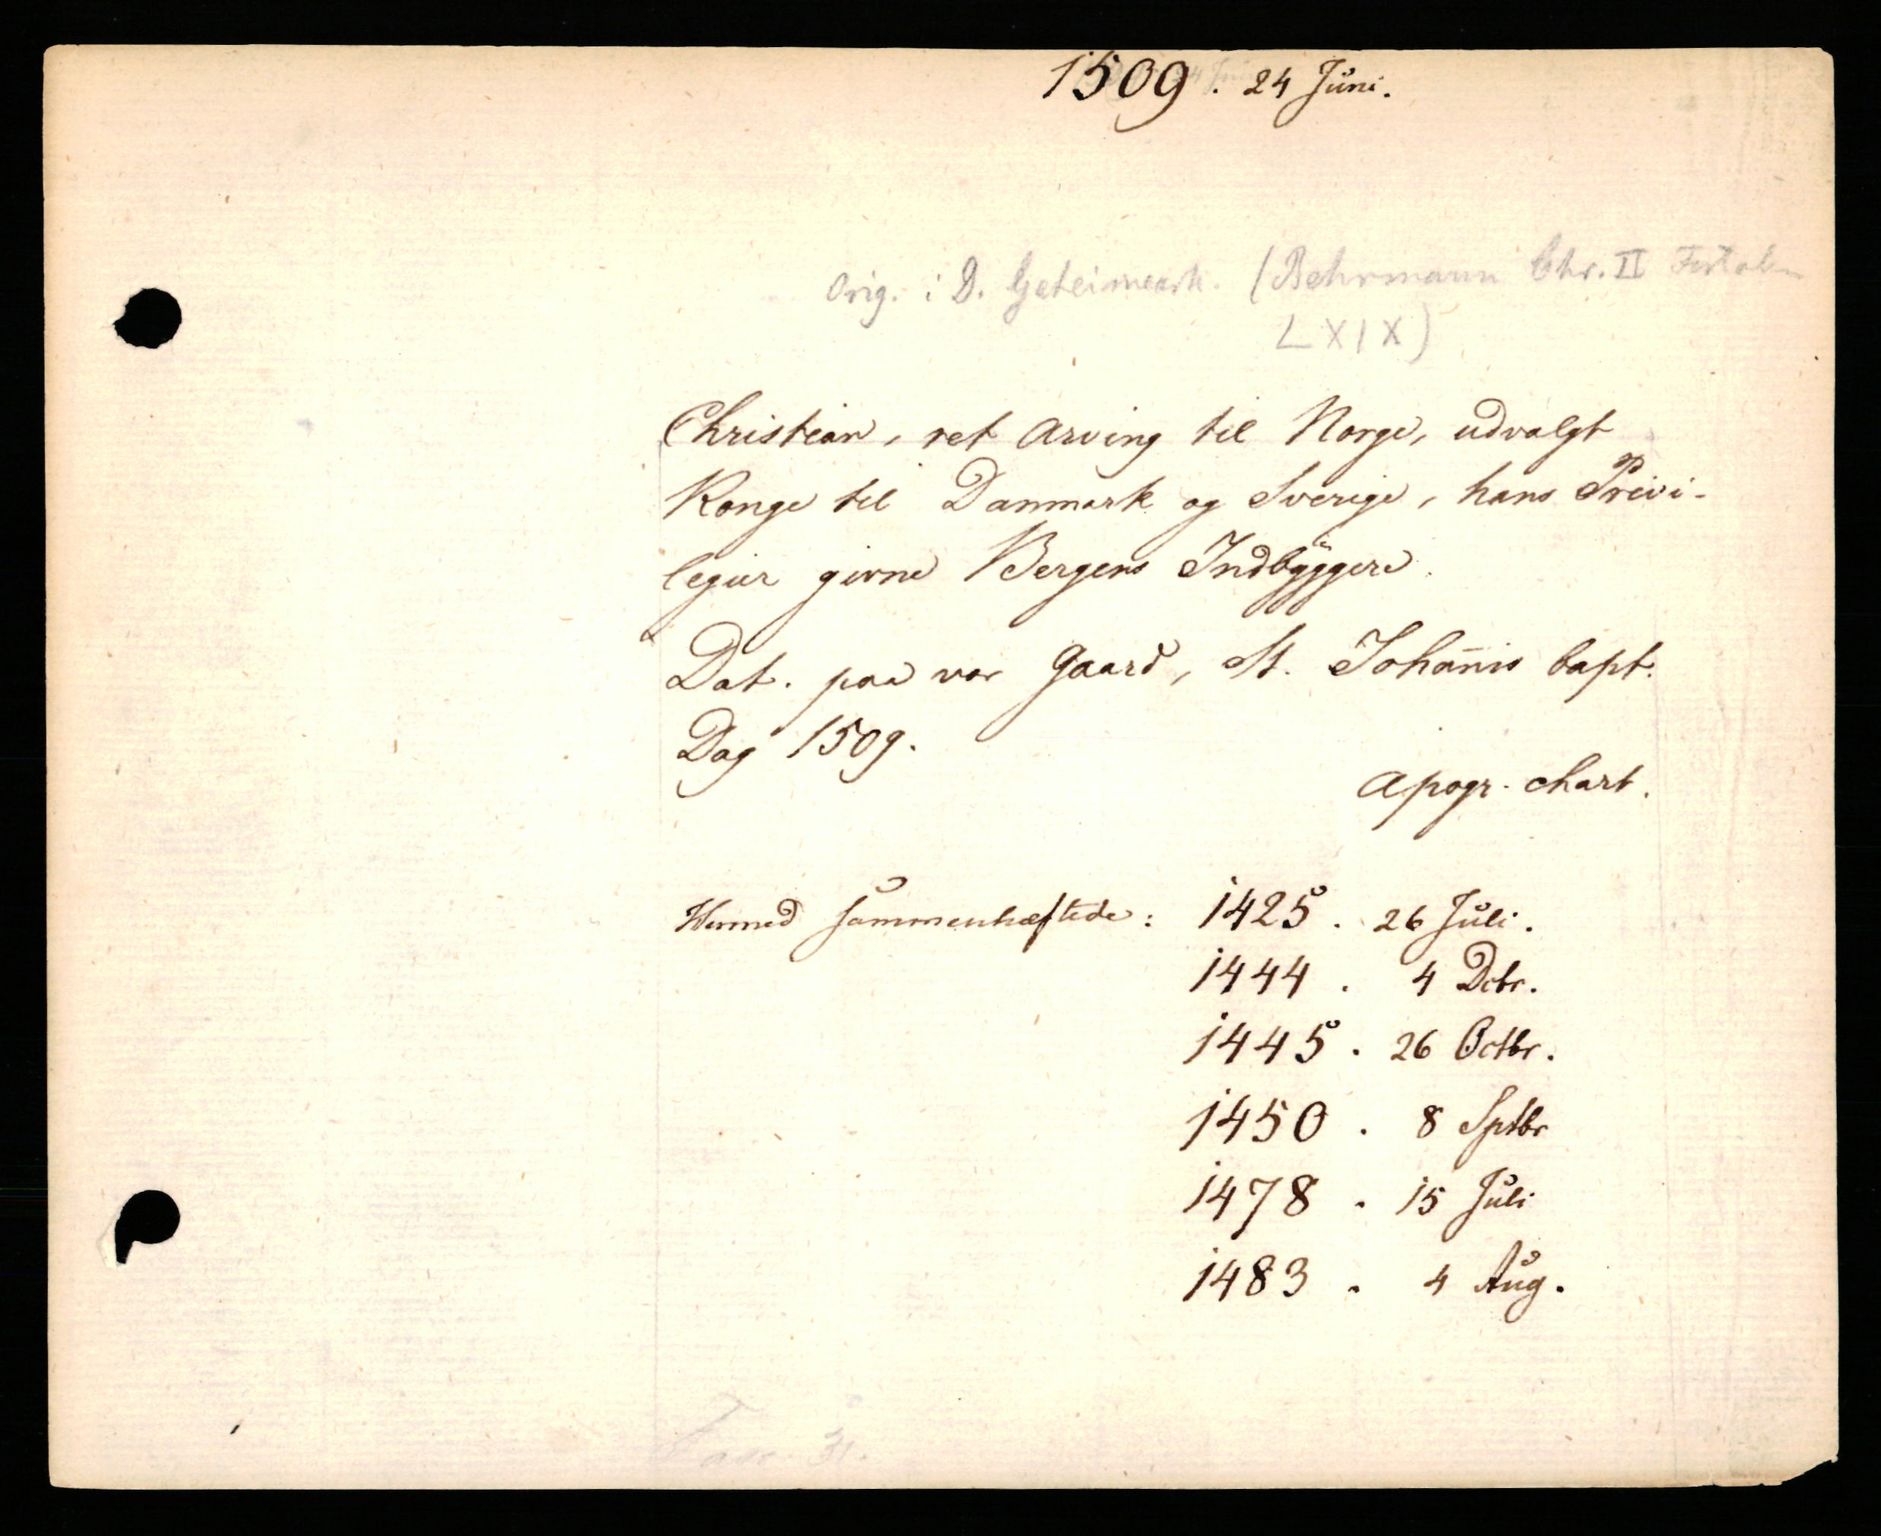 1509. 24 Juni.
Orig. i D. Geheimeark. (Behrmann Chr. II Fortalen
LXIX)
Christian, ret Arving til Norge, udvalgt
Konge til Danmark og Sverige, hans Privi-
legier givne Bergens Indbÿggere.
Dat. paa vor Gaard, St. Joha&#x304;nis bapt.
Dag 1509.
Apogr. chart.
Hermed sammenhæftede: 1425. 26 Juli.
1444. 4 Dcbr.
1445. 26 Octbr.
1450. 8 Sptbr
1478. 15 Juli
1483. 4 Aug.
Fasc. 31.